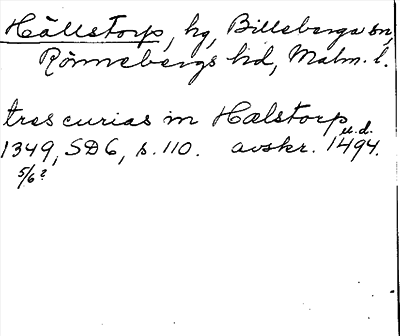 Hällstorp, hg, Billeberga sn,
Rönnebergs hd, Malm. l.
tres curias in Hælstorp
u.d.
1349, SD6, s. 110. avskr. 1494.
5/6?